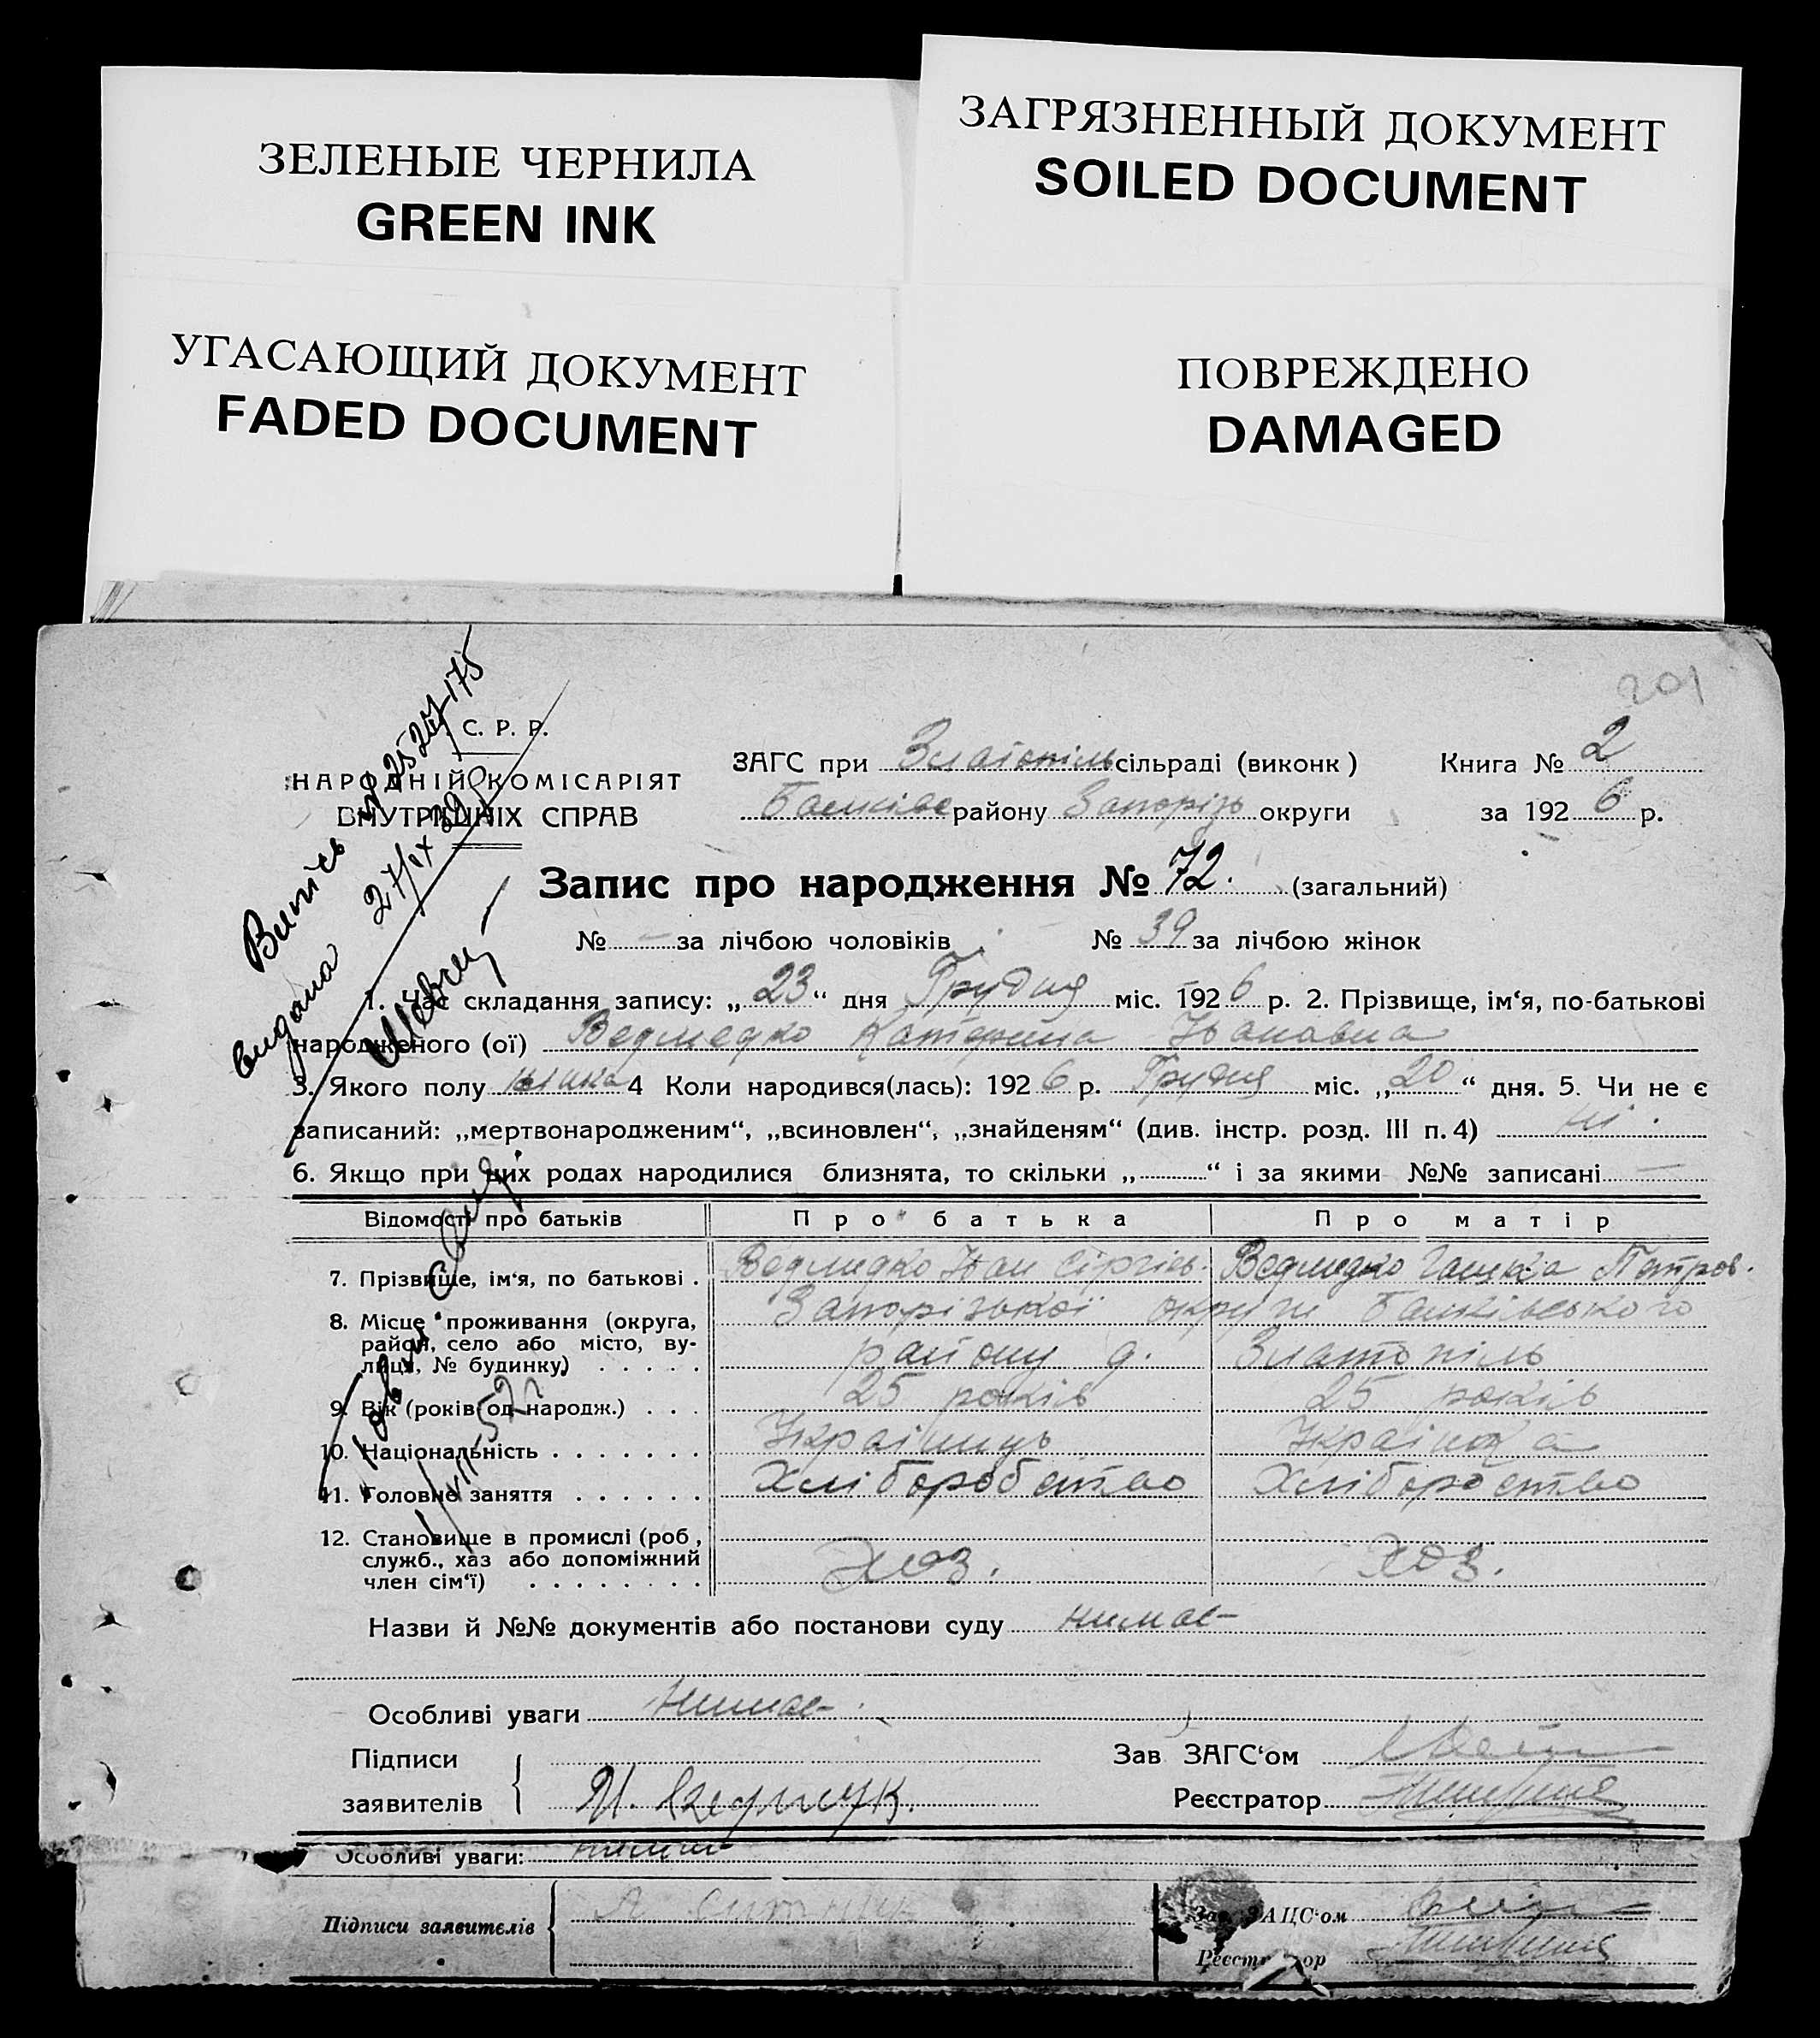 ЗЕЛЕНЫЕ ЧЕРНИЛА
GREEN INK
ЗАГРЯЗНЕННЫЙ ДОКУМЕНТ
SOILED DOCUMENT
УГАСАЮЩИЙ ДОКУМЕНТ
FADED DOCUMENT
ПОВРЕЖДЕНО
DAMAGED
201
С. Р. Р.
НАРОДНІЙ КОМІСАРІЯТ
ВНУТРІШНІХ СПРАВ
ЗАГС при Златопіль сільраді (виконк) Книга № 2
району Запорізь округи за 1926 р.
видана 27/IX 39
Запис про народження № 72. (загальний)
№ — за лічбою чоловіків № 39 за лічбою жінок
1. Час складання запису: „23“ дня Грудня міс. 1926 р. 2. Прізвище, ім‘я, по-батькові
народженого (ої) Ведмедко Катерина Івановна
3. Якого полу жінка 4 Коли народився(лась): 1926 р. Грудня міс. „20“ дня. 5. Чи не є
записаний: „мертвонародженим“, „всиновлен“, „знайденям“ (див. інстр. розд. III п. 4) ні.
6. Якщо при цих родах народилися близнята, то скільки „ “ і за якими №№ записані —
Відомості про батьків Про батька Про матір
7. Прізвище, ім‘я, по батькові . Ведмидко Іван Сіргієв. Ведмедко Ганька Петров.
8. Місце проживання (округа, район, село або місто, вулиця, № будинку) Запорізькоі округи
району д. Златопіль
9. Вік (років од народж.) . . . 25 років 25 років
10. Національність . . . . . . . Українць Українка
11. Головне заняття . . . . . . Хліборобство Хліборобство
12. Становище в промислі (роб,
служб., хаз або допоміжний
член сім‘ї) . . . . . . . . Хоз. Хоз.
Назви й №№ документів або постанови суду нимає
Особливі уваги нимає
Підписи
заявителів
Зав ЗАГС‘ом
Реєстратор
Особливі уваги:
Підписи заявителів
Зав. ЗАЦС‘ом
Реєстратор